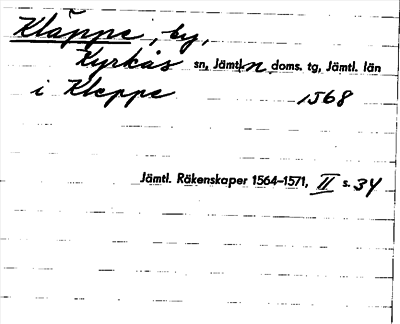 Kläppe, by,
Kyrkås sn, Jämtl. n doms. tg, Jämtl. län
i Kleppe 1568
Jämtl. Räkenskaper 1564–1571, II s. 34